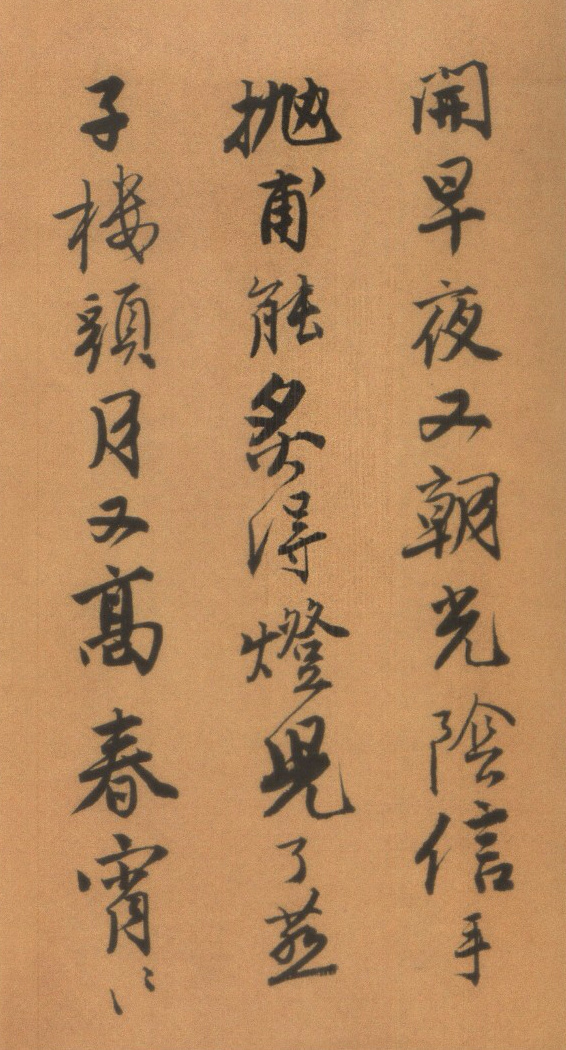 開早夜又朝光陰信手
抛甫能炙得燈兒了燕
子樓頭月又高春宵〻